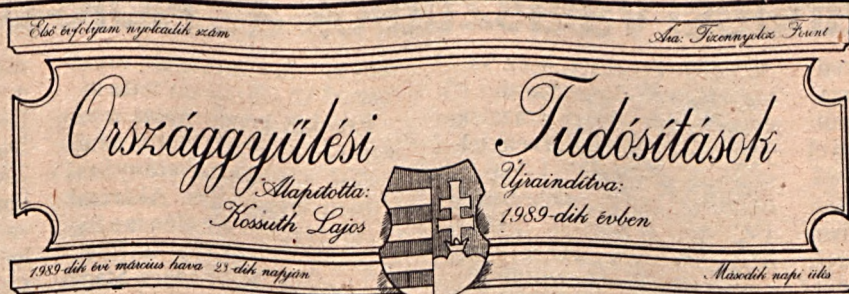 Első évfolyam nyolcadik szám
Ára: Tizennyolcz Forint
Országgyűlési Tudósítások
Alapította:
Kossuth Lajos
Újraindítva:
1989-dik évben
1989-dik évi március hava 23-dik napján
Második napi ülés